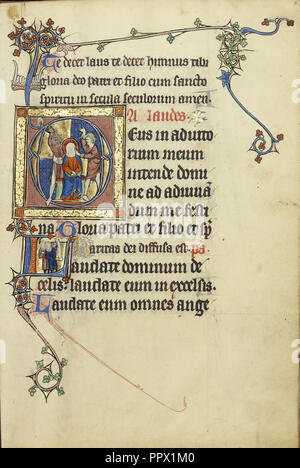 Te decet laus te decet himnus tibi
gloria deo patri et filio cum sancto
spiritu in secula seculorum amen.
A laudes.
Deus in adiuto
rium meum
intende domi
ne ad adiuuā
dum me festi
na. Gloria patri et filio et sp̄
aritas dei diffusa est. ps
Laudate dominum de
celis: laudate eum in excelsis.
Laudate eum omnes ange
alamy
alamy
Image ID: PPX1M0
www.alamy.com